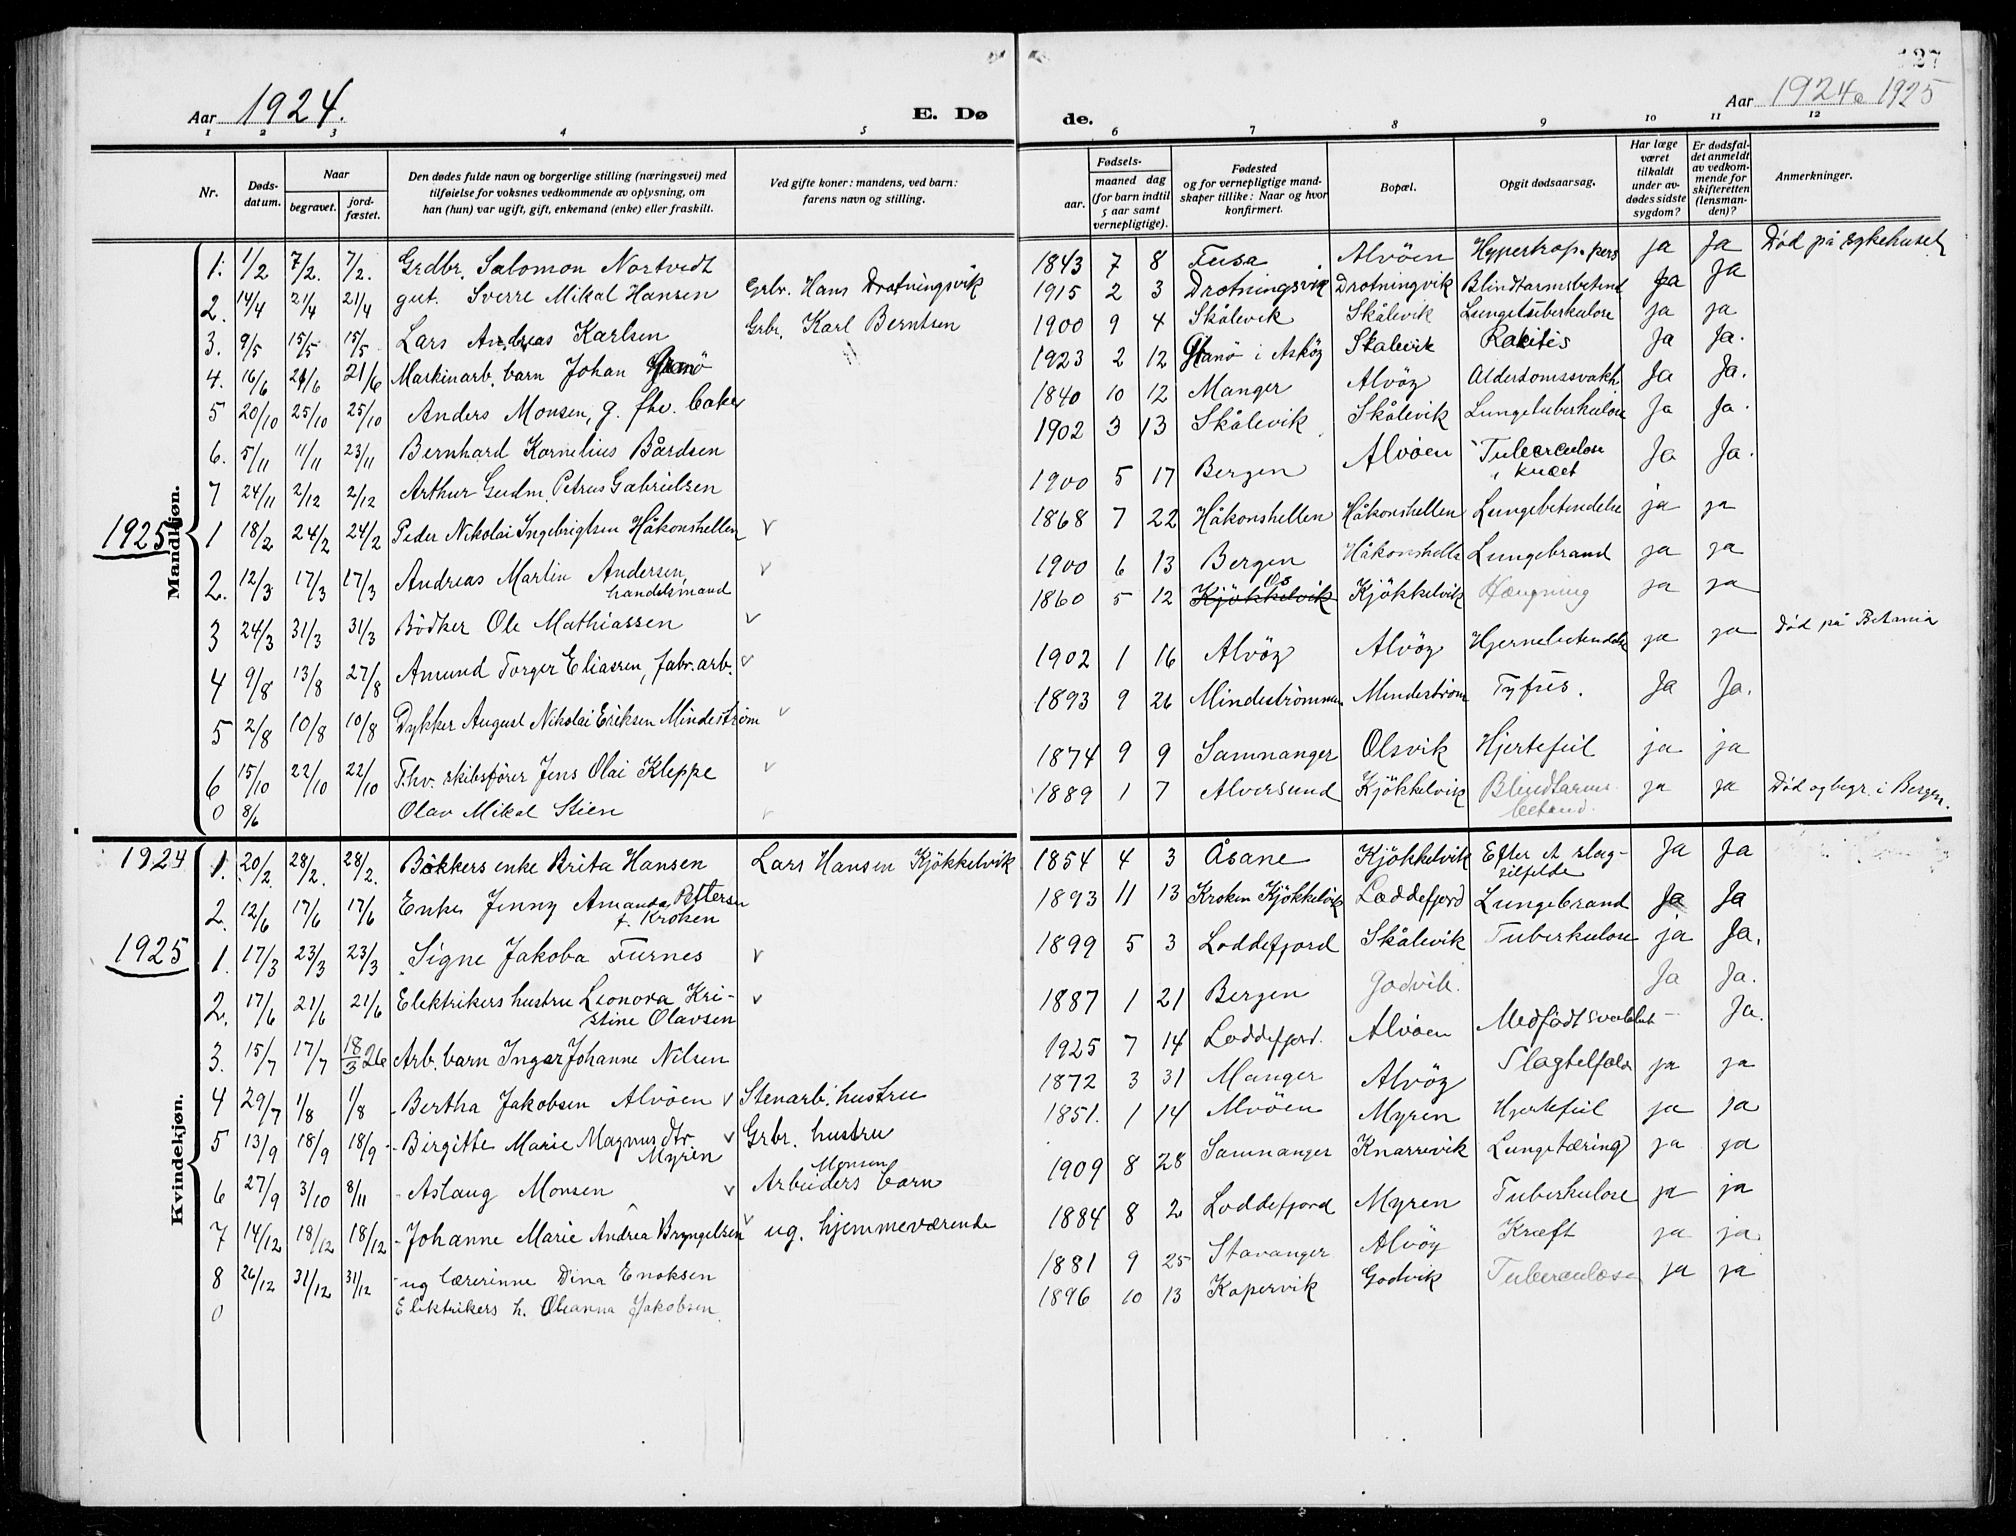 127
Aar 1924. E. Dø
de. Aar 1924 o 1925
1 2 3 4 5
6 7 8 9 10 11 12
Nr. Døds-datum. Naar begravet. jord-fæstet. Den dødes fulde navn og borgerlige stilling (næringsvei) med tilføielse for voksnes vedkommende av oplysning, om han (hun) var ugift, gift, enkemand (enke) eller fraskilt. Ved gifte koner: mandens, ved barn: farens navn og stilling.
Fødsels- aar. maaned dag (for barn indtil 5 aar samt vernepligtige). Fødested og for vernepligtige mand-skaper tillike: Naar og hvor konfirmert. Bopæl. Opgit dødsaarsag. Har læge været tilkaldt under av-dødes sidste sygdom? Er dødsfal-det anmeldt av vedkom-mende for skifteretten (lensman-den)? Anmerkninger.
Mandkjøn.
1. 1/2 7/2. 7/2. Grdbr. Salomon Nortvedt 1843 7 8 Fusa Alvöen Hypertrop. pros Ja Ja Död på sykehuset
2. 14/4 21/4 21/4 gut. Sverre Mikal Hansen Grbr. Hans Drotningsvik 1915 2 3 Drotningsvik Drotningvik Blindtarmsbetend Ja Ja
3. 9/5 15/5 15/5 Lars Andreas Karlsen Grbr. Karl Berntsen 1900 9 4 Skålevik Skålevik Lungetuberkulose Ja ja
4. 16/6 21/6 21/6 Maskinarb. barn Johan 1923 2 12 i Asköy Skalevik Rakitis Ja Ja.
5 20/10 25/10 25/10 Anders Monsen, g. fhv. 1840 10 12 Manger Alvöy Alderdomssvakh Ja Ja.
6. 5/11 11/11 23/11 Bernhard Kornelius Bårdsen 1902 3 13 Skålevik Skålevik Lungetuberkulose Ja Ja.
7 24/11 2/12 2/12 Arthur Gudm. Petrus Gabrielsen 1900 5 17 Bergen Alvöen Tuberculose i knæet Ja Ja.
1925
1 18/2 24/2 24/2 Peder Nikolai Ingebrigtsen Håkonshellen v 1868 7 22 Håkonshellen Håkonshellen Lungebetendelse ja ja
2. 12/3 17/3 17/3 Andreas Martin Andersen, handelsmand v 1900 6 13 Bergen Håkonshelle Lungebrand ja ja
3 24/3 31/3 31/3 Bödker Ole Mathiassen v 1860 5 12 Kjökkelvik Os Kjökkelvik Hængning ja ja
4 9/8 13/8 27/8 Amund Torger Eliassen, fabr. arb. v 1902 1 16 Alvöy Alvöy Hjernebetendelse ja ja Död på Betania
5 2/8 10/8 10/8 Dykker August Nikolai Eriksen Mindeström v 1893 9 26 Mindeströmmen Mindeström Tyfus. Ja Ja.
6 15/10 22/10 22/10 F.hv. skibsförer Jens Olai Kleppe v 1874 9 9 Samnanger Olsvik Hjertefeil ja ja
0 8/6 Olav Mikal Stien v 1889 1 7 Alversund Kjökkelvik Blindtarms betænd. ja ja Död og begr. i Bergen.
Kvindekjøn.
1924
1. 20/2. 28/2. 28/2. Bökkers enke Brita Hansen Lars Hansen Kjökkelvik 1854 4 3 Åsane Kjökkelvik Efter et slag-tilfelde Ja Ja
2. 12/6 17/6 17/6 Enke Jenny Amanda Pettersen f. Kroken 1893 11 13 Kroken Kjökkelvik Loddefjord Lungebrand Ja Ja
1925
1. 17/3 23/3 23/3 Signe Jakoba Furnes v 1899 5 3 Loddefjord Skålevik Tuberkulose ja Ja.
2. 17/6 21/6 21/6 Elektrikers hustru Leonora Kri-stine Olavsen v 1887 1 21 Bergen Godvik. Ja Ja.
3. 15/7 17/7 18/3 26 Arb. barn Inger Johanne Nilsen 1925 7 14 Loddefjord. Alvöen Medfödt svakhet - Ja.
4 29/7 1/8 1/8 Bertha Jakobsen Alvöen v Stenarb. hustru 1872 3 31 Manger Alvöy Slagtelfælde ja ja
5 13/9 18/9 18/9 - Birgitte Marie Magnusdtr. Myren v Grbr. hustru 1851. 1 14 Alvöen Myren Hjertefeil ja ja
6 27/9 3/10 8/11 - Aslaug Monsen v Arbeiders Monsen barn 1909 8 28 Samnanger Knarrevik Lungetæring ja ja
7 14/12 18/12 18/12 - Johanne Marie Andrea Bryngelsen v ug. hjemmeværende 1884 8 2 Loddefjord Myren Tuberkulose ja ja
8 26/12 31/12 31/12 - ug lærerinne Dina Enoksen 1881 9 25 Stavanger Alvöy Kræft ja ja
0 Elektrikers h. Oleanna Jakobsen. 1896 10 13 Kopervik Godvik Tuberculose ja ja